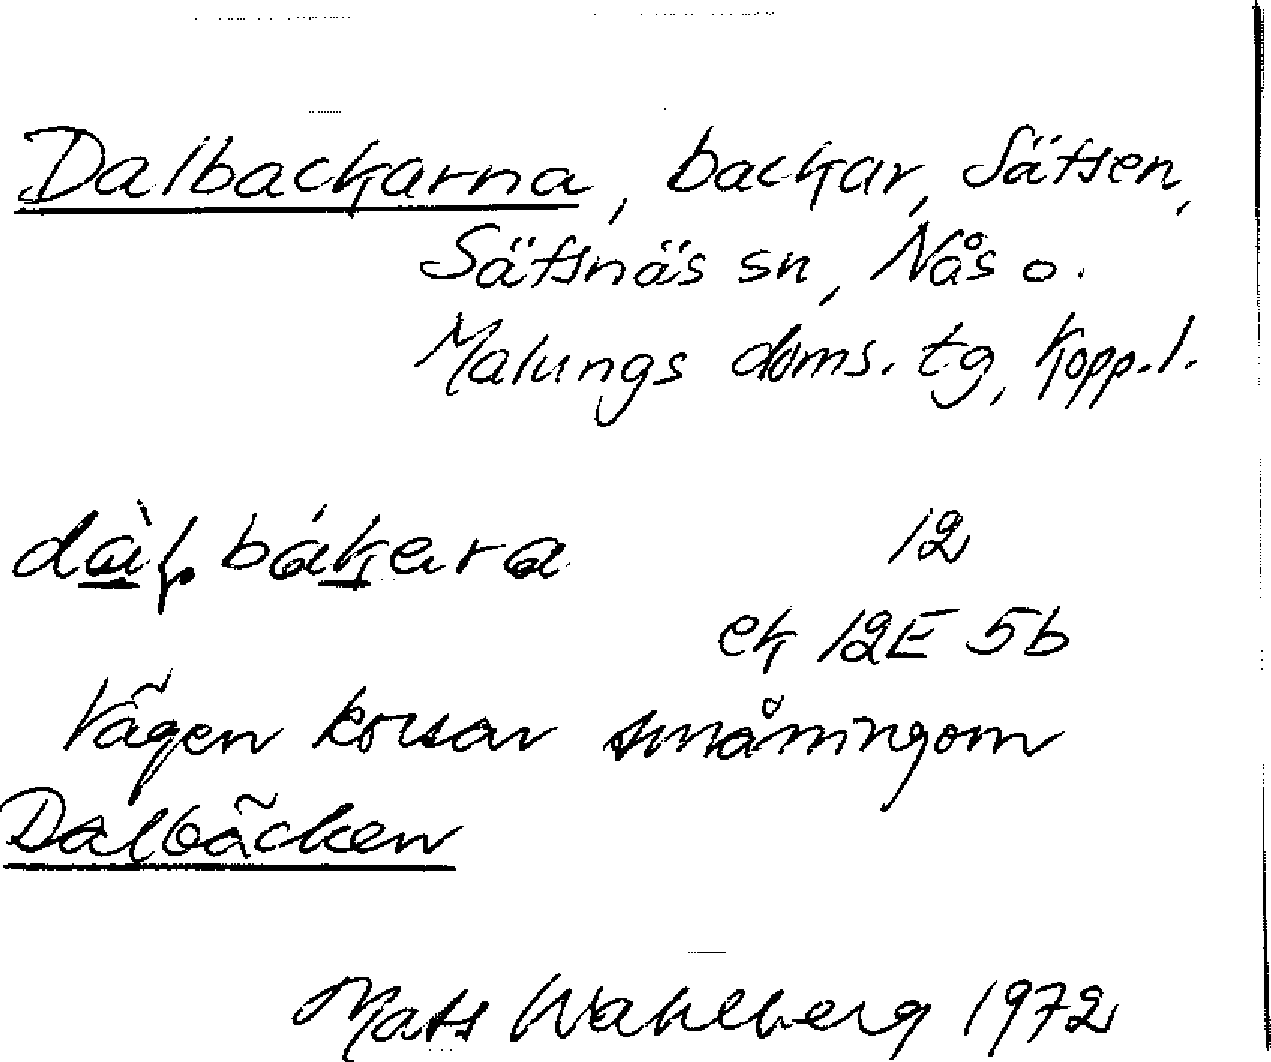 Dalbackarna, backar, Sätsen,
Sätsnäs sn, Nås o.
Malungs doms. tg, Kopp. l.
dàḷbákara 12
ek 12E 5b
Vägen korsar småningom
Dalbäcken
Mats Wahlberg 1972